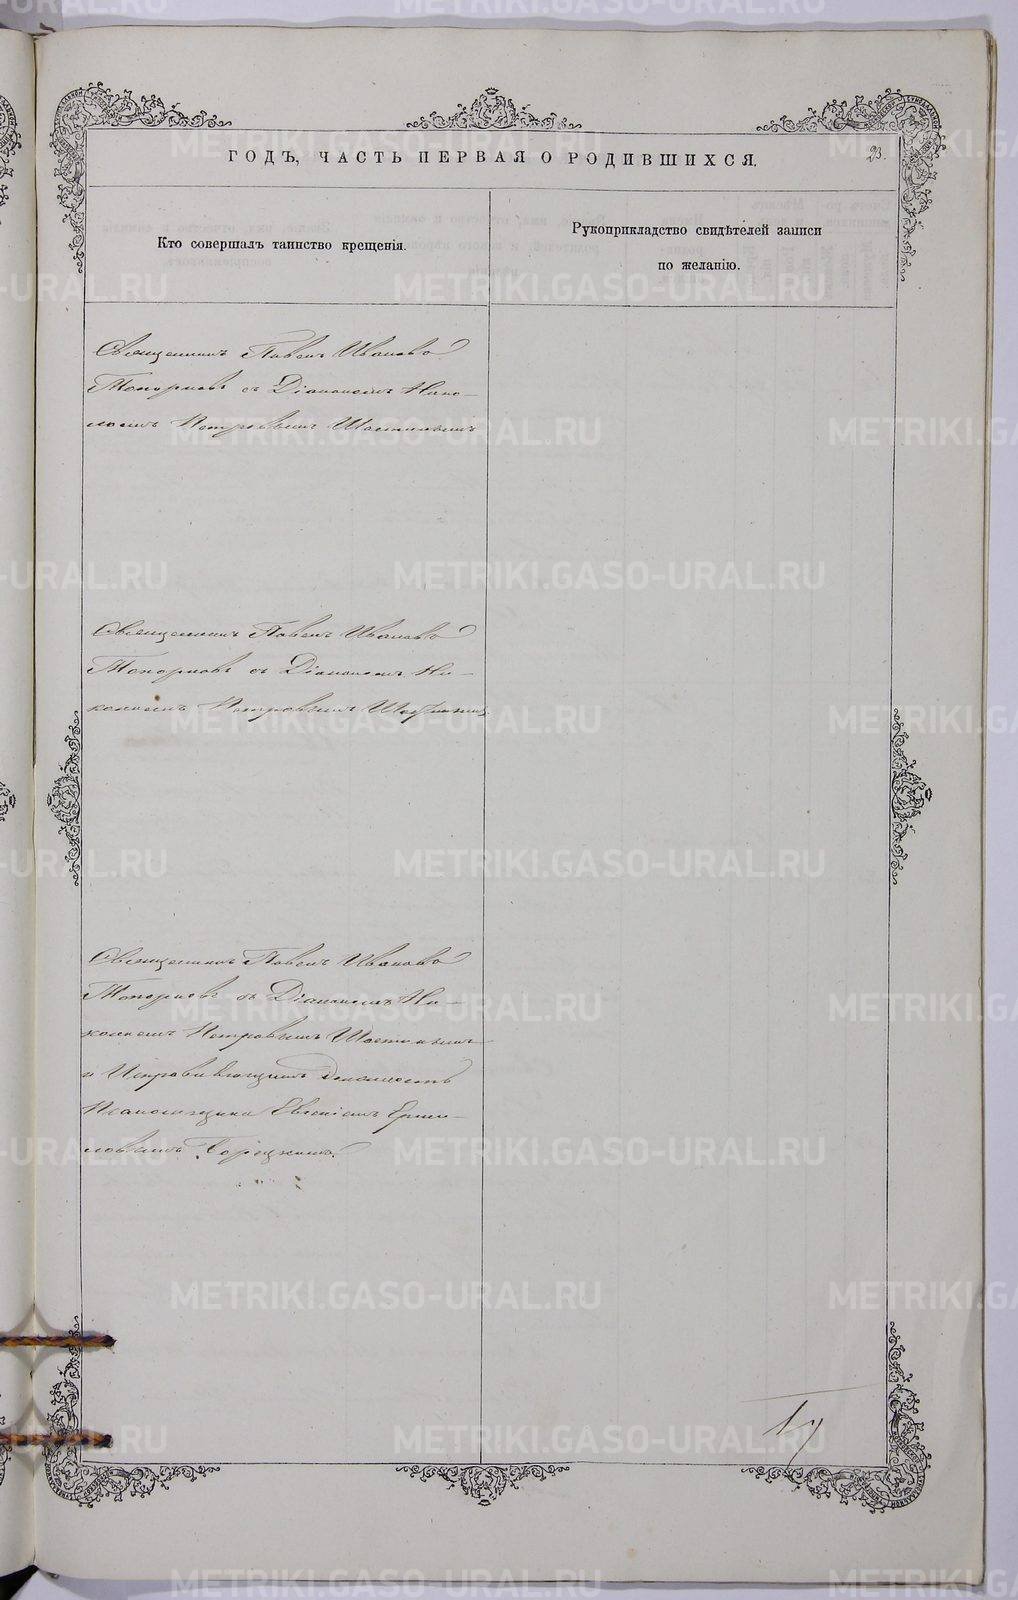 ГОДЪ, ЧАСТЬ ПЕРВАЯ О РОДИВШИХСЯ.
23.
Кто совершалъ таинство крещенія.
Рукоприкладство свидѣтелей записи
по желанію.
Священникъ Павелъ Иванов
Топорковъ съ Діакономъ Нико-
лаемъ Петровымъ
Священникъ Павелъ Иванов
Топорковъ съ Діакономъ Ни-
колаемъ Петровымъ
Священникъ Павелъ Иванов
Топорковъ съ Діакономъ Ни-
колаемъ Петровымъ
и Исправляющимъ должность
Псаломщика Евгеніемъ Ерми-
ловымъ
METRIKI.GASO-URAL.RU